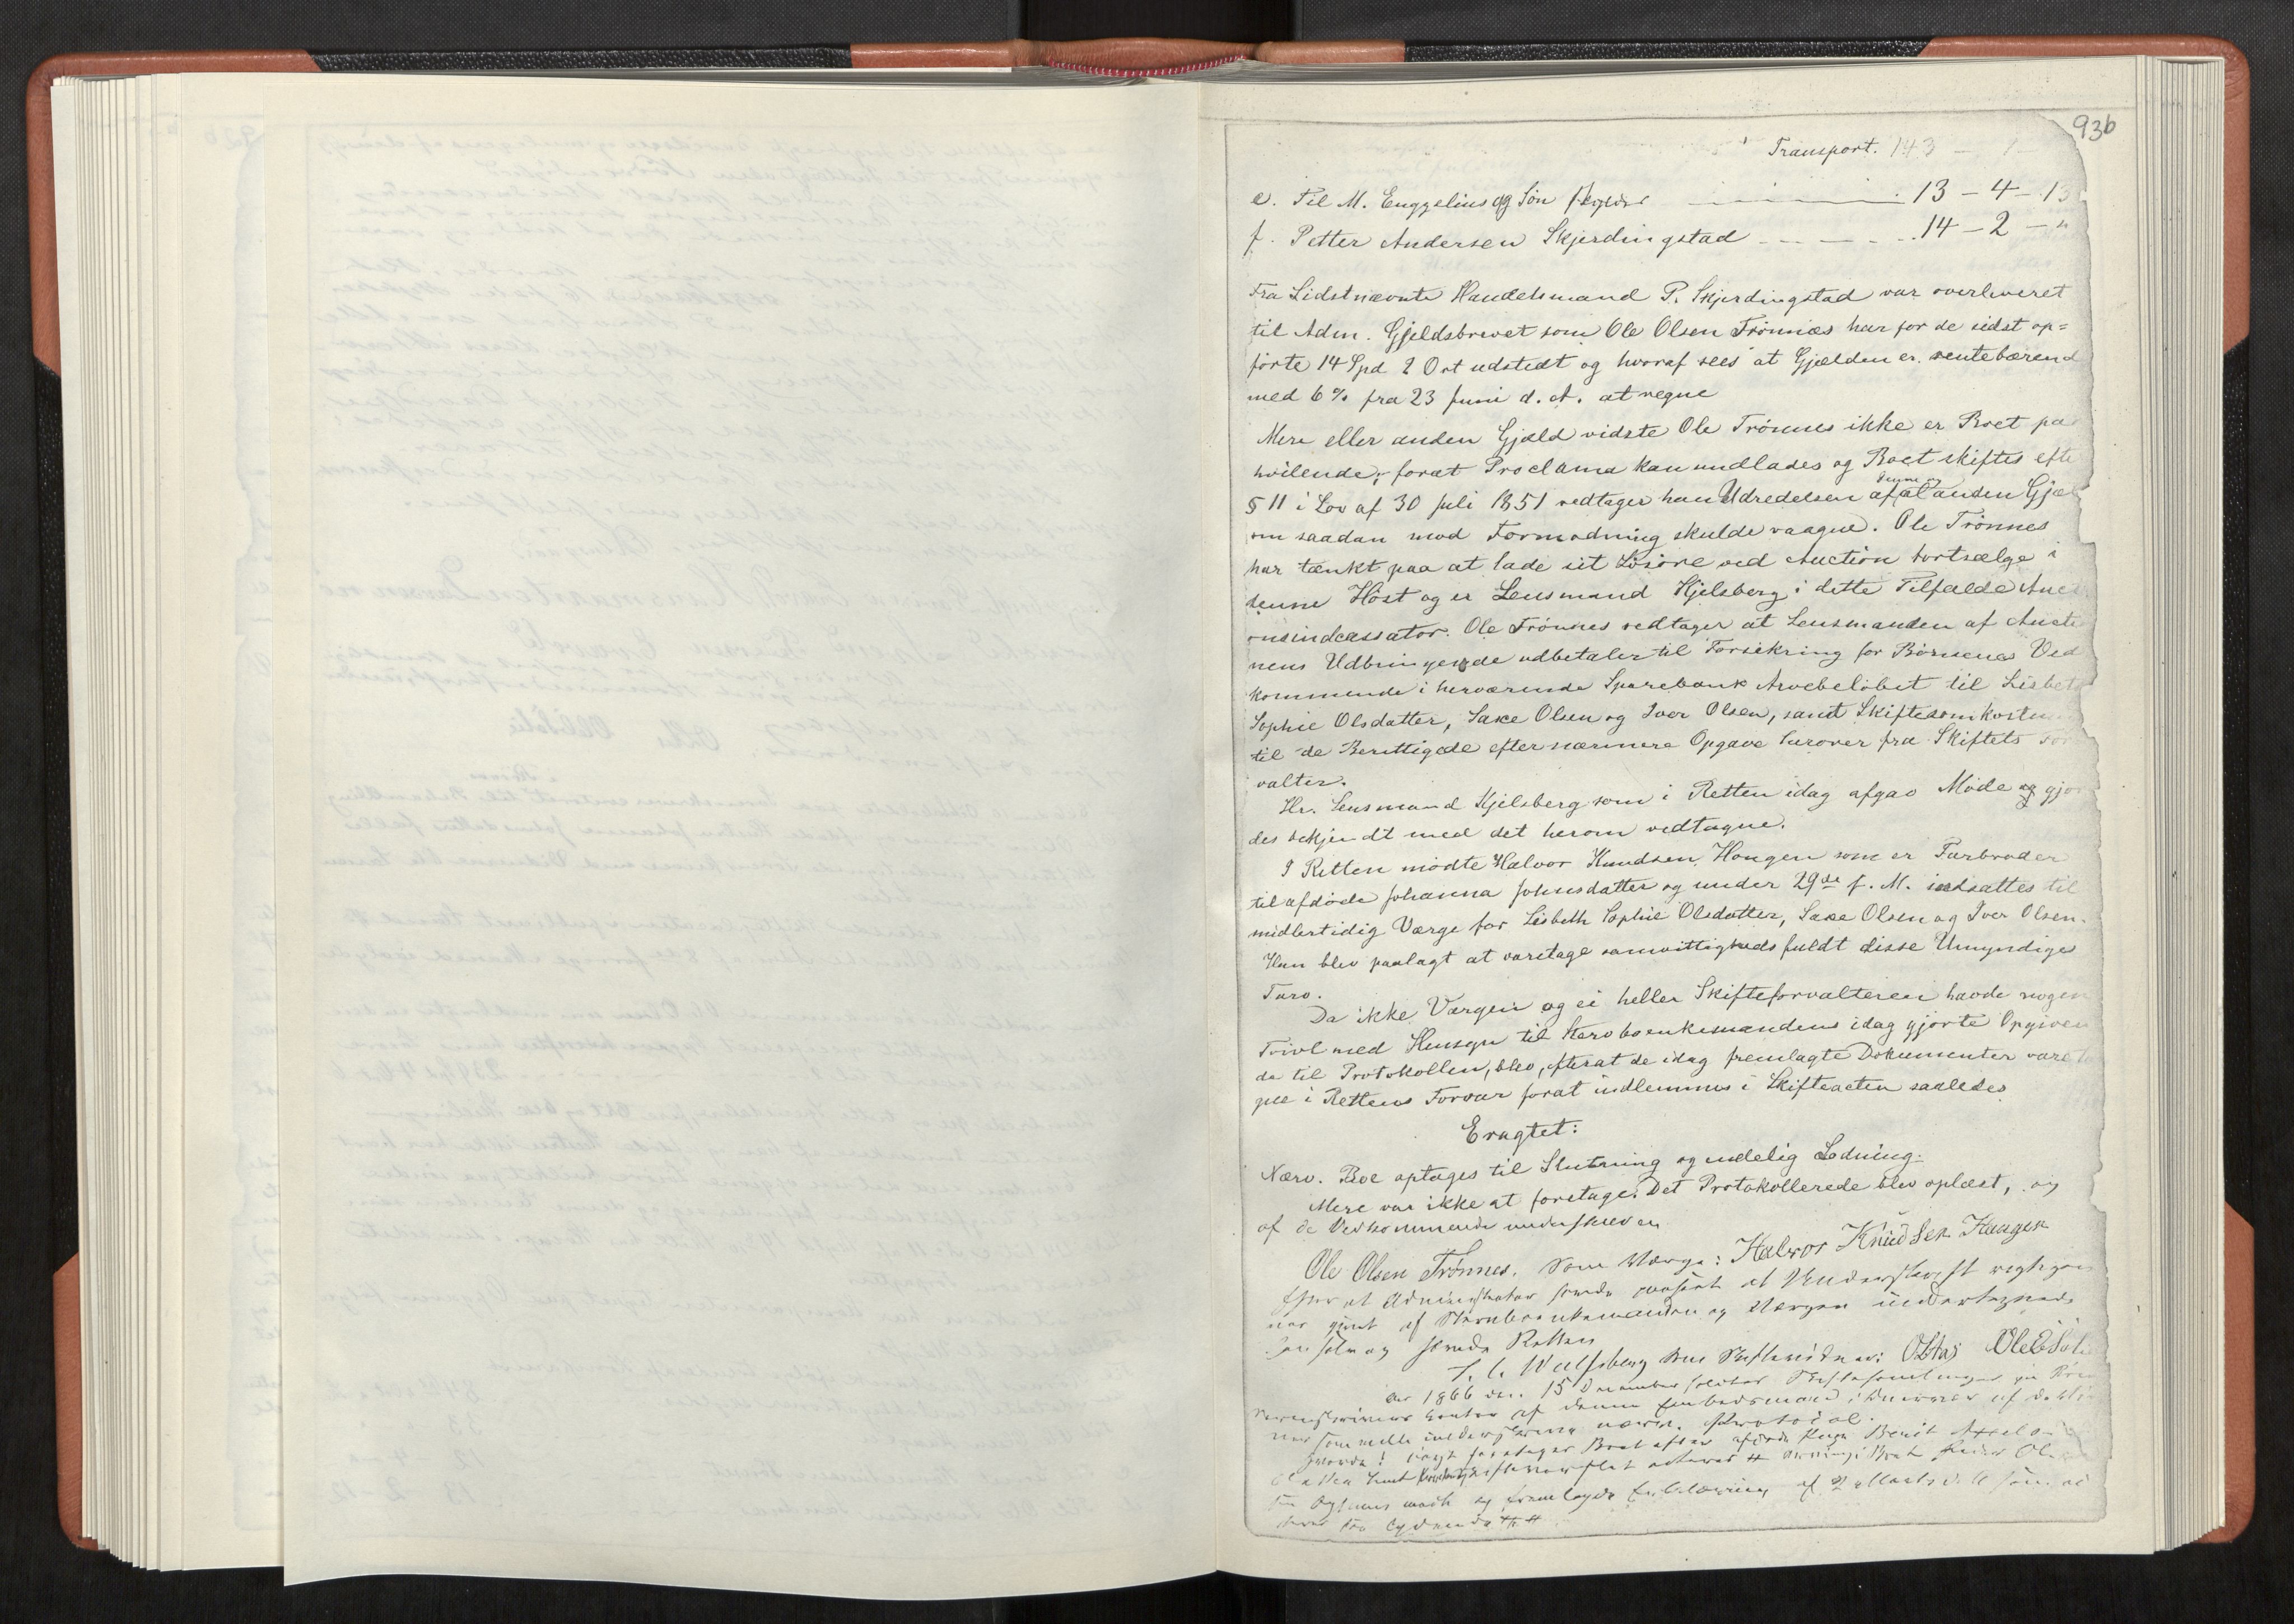 93b
Transport. 143 – 1
e. Til M. Enggelius og Søn skyldes 13 – 4 – 13
f. Petter Andersen Skjerdingstad 14 – 2 – "
Fra Sidstnævnte Handelsmand P. Skjerdingstad var overleveret
til Adm. Gjeldsbrevet som Ole Olsen Trønnæs har for de sidst op=
førte 14 Spd 2 Ort udstedt og hvoraf sees at Gjælden er rentebærend
med 6 % fra 23 Juni d. A. at regne
Mere eller anden Gjæld vidste Ole Trønnes ikke er Boet paa
hvilende; forat Proclama kan undlades og Boet skiftes efte
§ 11 i Lov af 30 Juli 1851 vedtager han Udredelsen af denne og al anden Gjæl
om saadan mod Formodning skulde vaagne. Ole Trønnes
har tænkt paa at lade sit Løsøre ved Auction bortsælge i
denne Høst og er Lensmand Kjelsberg i dette Tilfælde Aucti
onsindcassator. Ole Trønnes vedtager at Lensmanden af Aucti
nens Udbringende udbetaler til Forsikring for Børnenes Ved
kommende i herværende Sparebank Arvebeløbet til Lisbeth
Sophie Olsdatter, Saxe Olsen og Iver Olsen, samt Skiftesomkostn
til de Berettigede efter nærmere Opgave herover fra Skiftets for
valter.
Hr. Lensmand Kjelsberg som i Retten idag afgav Møde og gjor
des bekjendt med det herom vedtagne.
I Retten mødte Halvor Knudsen Haugen som er Farbroder
til afdøde Johanna Johnsdatter og under 29de f. M. indsattes til
midlertidig Værge for Lisbeth Sophie Olsdatter, Saxe Olsen og Iver Olsen.
Han blev paalagt at varetage samvittighedsfuldt disse Umyndiges
Tarv.
Da ikke Værgen og ei heller Skifteforvalteren havde nogen
Tvivl med Hensyn til Stervboenkemandens idag gjorte Opgiven
de til Protokollen, blev, efterat de idag fremlagte Dokumenter vare ta
gne i Rettens Forvar forat indlemmes i Skifteacten saaledes
Eragtet:
Nærv. Boe optages til Slutning og udelig Lodning.
Mere var ikke at foretage. Det Protokollerede blev oplæst, og
af de Vedkommende underskreven
Ole Olsen Trønnes. Som Værge: Halvor Knüdsen Haagen
Efter at Administrator havde paaseet at Underskrift
var gjort af Stervboenkemanden og Værgen undertegnede
han selv og hævede Retten
Som Skiftevidner:
Aar 1866 den 15 December holdtes Skiftesamling paa
kontor af denne Embedsmand i Overvær af